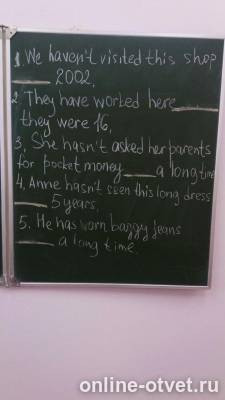 1. We haven't visited this shop
____ 2002.
2. They have worked here ____
they were 16.
3. She hasn't asked her parents
for pocket money ____ a long time
4. Anne hasn't seen this long dress
____ 5 years.
5. He has worn baggy jeans
____ a long time.
online-otvet.ru